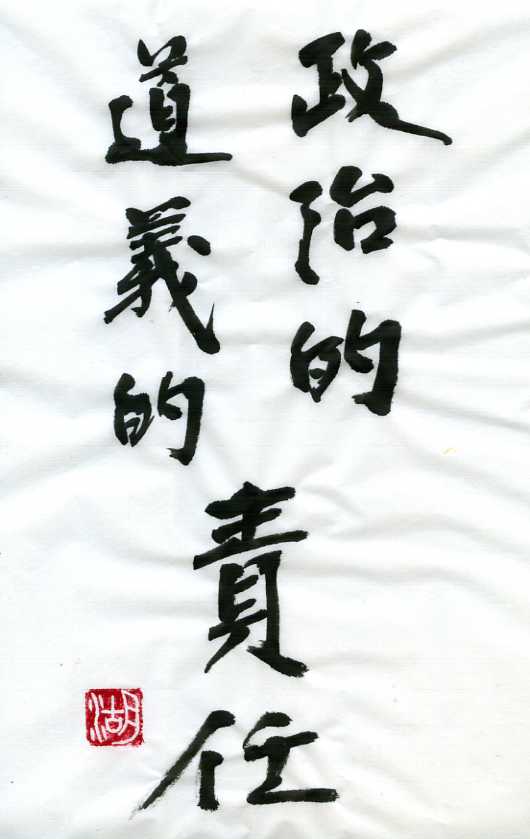 政治的
道義的
責任
湖